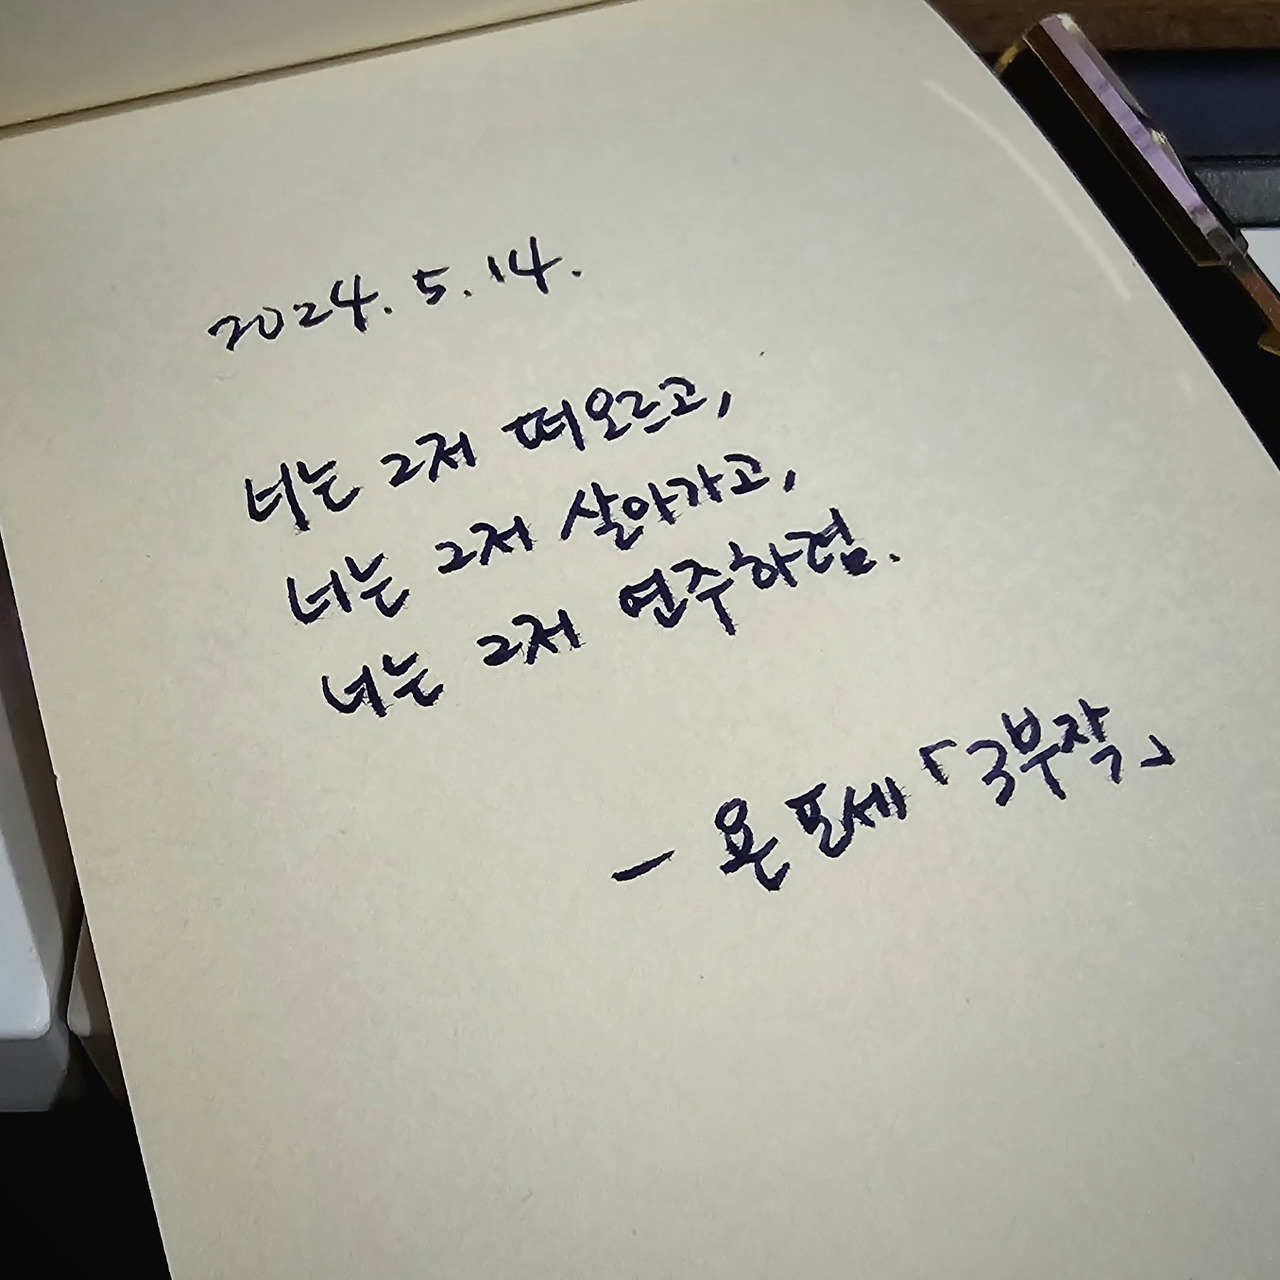 2024. 5. 14.
너는 그저 떠오르고,
너는 그저 살아가고,
너는 그저 연주하렴.
- 욘 포세 「3부작」